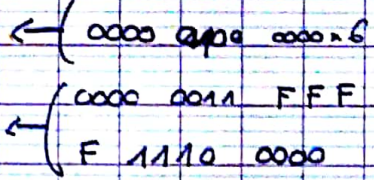 0000 0000 0000 x 6
0000 0011 F F F
F 1110 0000